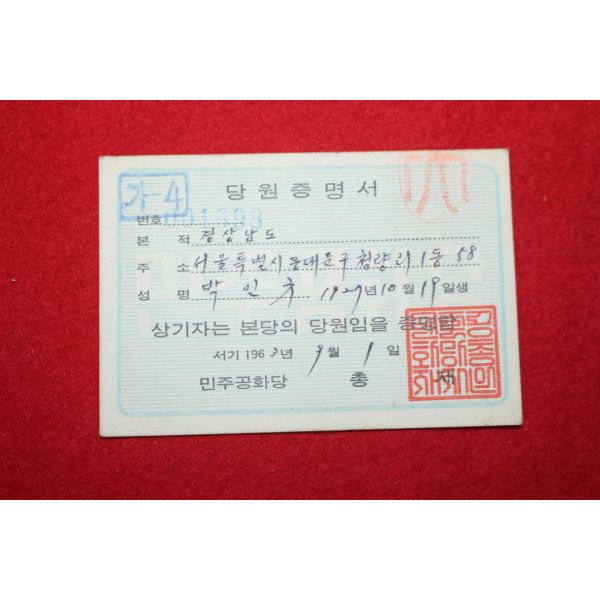 가-4
당원증명서
번호 001398
본 적 경상남도
주 소 서울특별시 동대문구 청량리 1동 58
성 명 박인규 1927년 10월 19일생
상기자는 본당의 당원임을 증명함
서기 1963년 9월 1일
민주공화당 총 재